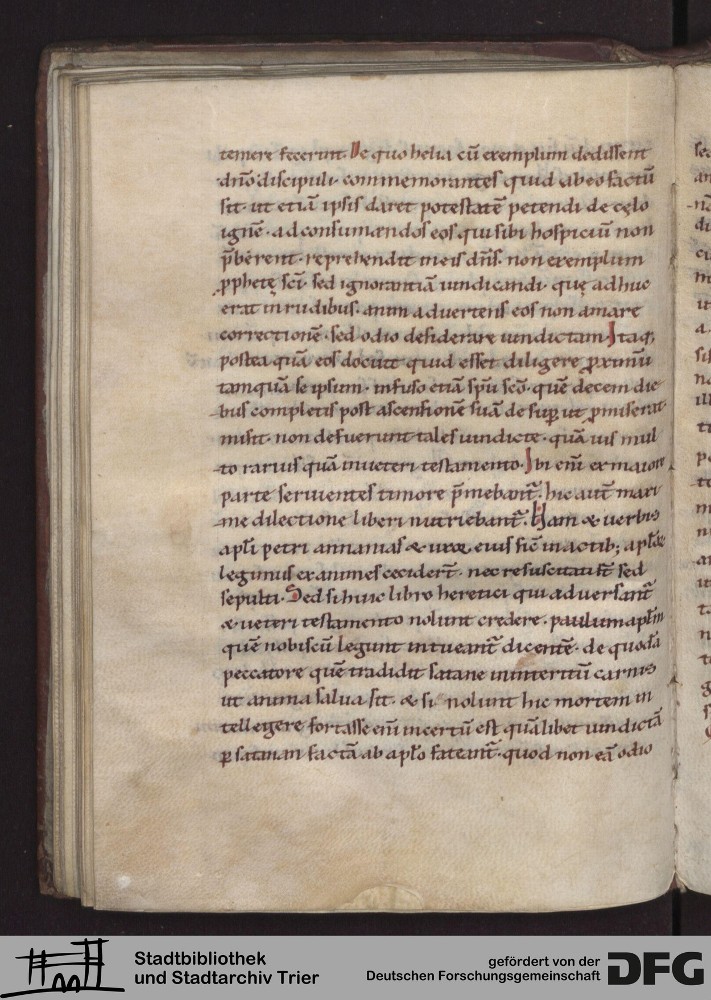 temere fecerunt. De quo helia cū exemplum dedissent
dnō discipuli. commemorantes quid ab eo factū
sit. ut etiā ipsis daret potestatē petendi de cęlo
ignē. ad consumandos eos qui sibi hospiciū non
p̄berent. reprehendit in eis dn̄s. non exemplum
ꝓphetę sc̄i. sed ignorantiā uindicandi. quę adhuc
erat in rudibus. animaduertens eos non amare
correctionē. sed odio desiderare uindictam. Itaq;
postea quā eos docuit quid esset diligere ꝓximū
tamquā se ipsum. infuso etiā sp̄u sc̄o. quē decem die
bus completis post ascensionē suā desuꝑ ut ꝓmiserat
misit. non defuerunt tales uindictę. quāuis mul
to rarius quā in ueteri testamento. Ibi em̄ ex maiore
parte seruientes timore p̄mebant᷑. hic aut̄ maxi
me dilectione liberi nutriebant᷑. Nam & uerbis
apl̄i petri annanias & uxor eius sic̄ in actib; aplōꝝ
legimus exanimes cecidert̄. nec resuscitati st̄ sed
sepulti. Sed si huic libro heretici qui aduersant᷑
& ueteri testamento nolunt credere. paulum apl̄m
quē nobiscū legunt intueant᷑ dicentē. de quodā
peccatore quē tradidit satane in interitū carnis
ut anima salua sit. & si nolunt hic mortem in
tellegere fortasse em̄ incertū est quālibet uindictā
ꝑ satanan factā ab apl̄o fateant᷑. quod non eā odio
Stadtbibliothek
und Stadtarchiv Trier
gefördert von der
Deutschen Forschungsgemeinschaft
DFG